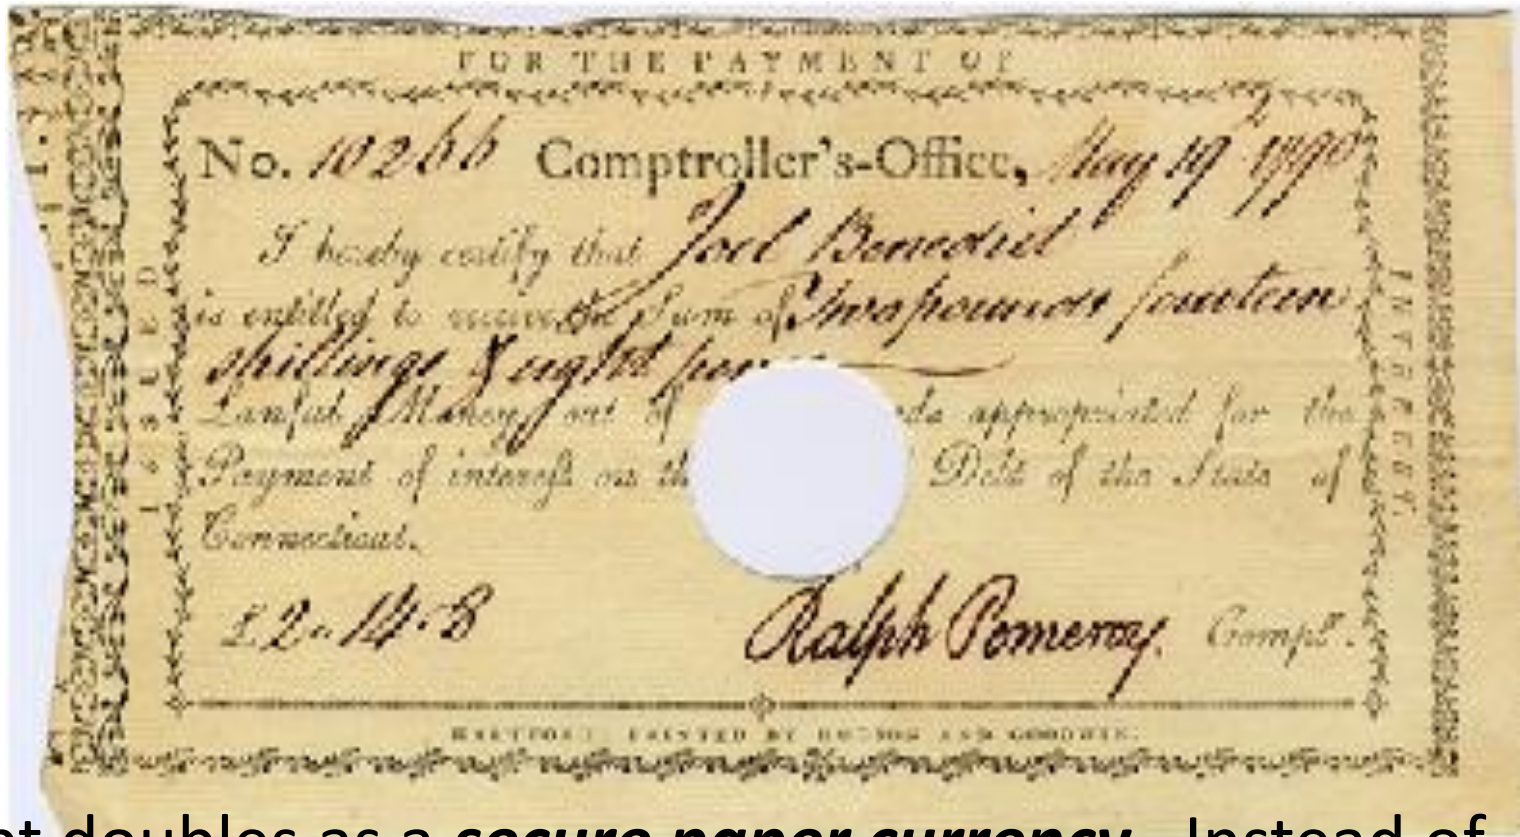 FOR THE PAYMENT OF
No. 10266 Comptroller's-Office, May 19 1790
I hereby certify that Joel Benedict
is entitled to receive the Sum of Two pounds fourteen
shillings & eight
Lawful Money, out of appropriated for the
Payment of interest on Debt of the State of
Connecticut.
£2 " 14 . 8 Ralph Pomeroy. Compt.
HARTFORD: PRINTED BY HUDSON AND GOODWIN.
ISSUED
INTEREST.
doubles as a secure paper currency. Instead of